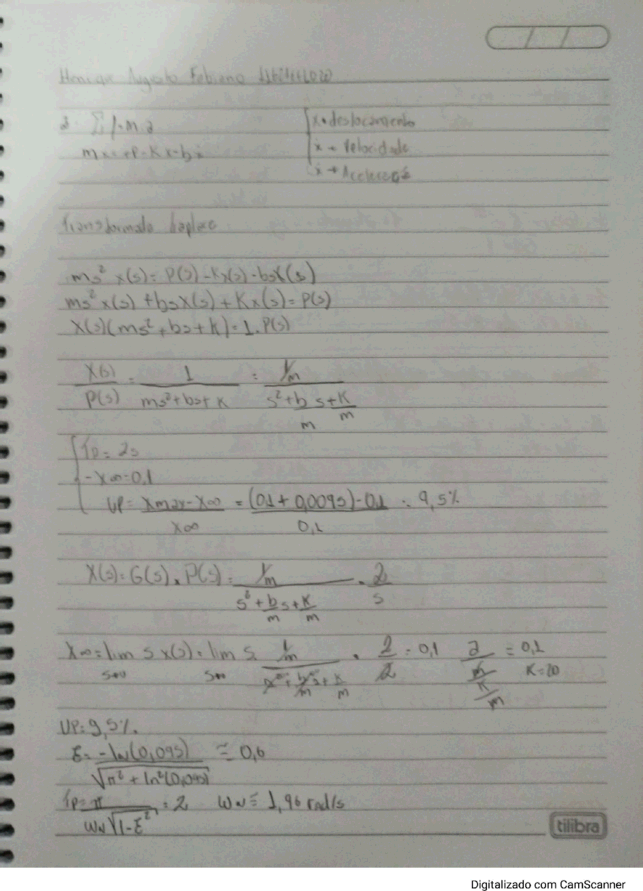 Henrique Augusto Fabiano
2. Σ f = m a
mẍ = +P - Kx - bẋ
x → deslocamento
ẋ → Velocidade
ẍ → Aceleração
Transformada Laplace
ms² x(s) = P(s) - Kx(s) - bsX(s)
ms² x(s) + bsX(s) + Kx(s) = P(s)
X(s)(ms² + bs + k) = 1.P(s)
X(s)/P(s) = 1/(ms² + bs + k) = (1/m)/(s² + b/m s + K/m)
Tp = 2s
- X∞ = 0,1
UP = (Xmax - X∞)/X∞ = ((0,1 + 0,0095) - 0,1)/0,1 = 9,5%
X(s) = G(s) . P(s) = (1/m)/(s² + b/m s + K/m) . 2/s
X∞ = lim s→0 s x(s) = lim s→0 s (1/m)/(s² + b/m s + K/m) . 2/s = 0,1 = 0,1
K = 20
UP = 9,5%
ξ = -ln(0,095)/√(π² + ln²(0,095)) ≅ 0,6
Tp = π/(Wn√(1-ξ²)) = 2 Wn ≅ 1,96 rad/s
tilibra
Digitalizado com CamScanner